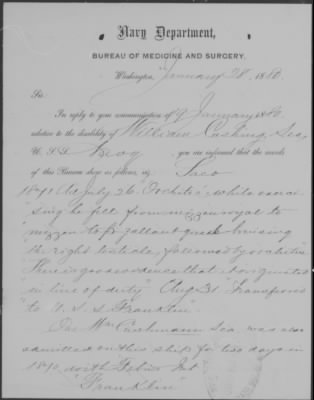 Navy Department,
BUREAU OF MEDICINE AND SURGERY,
Washington, January 28, 1880.
Sir:
In reply to your communication of 9 January 1880
relative to the disability of William Cushing, Sea,
U. S. S. you are informed that the records
of this Bureau show as follows, viz: Saco
1871 July 26 "Orchitis" while
he fell from mizzen royal to
mizzen to'p gallant bruising
the right testicle, followed by orchitis
There is good evidence that it originated
"in line of duty" Aug 31 Transferred
to U. S. S. Franklin"
One Wm Cushmann Sea. was also
admitted on this ship for two days in
1870 with Febris Int
"Franklin"